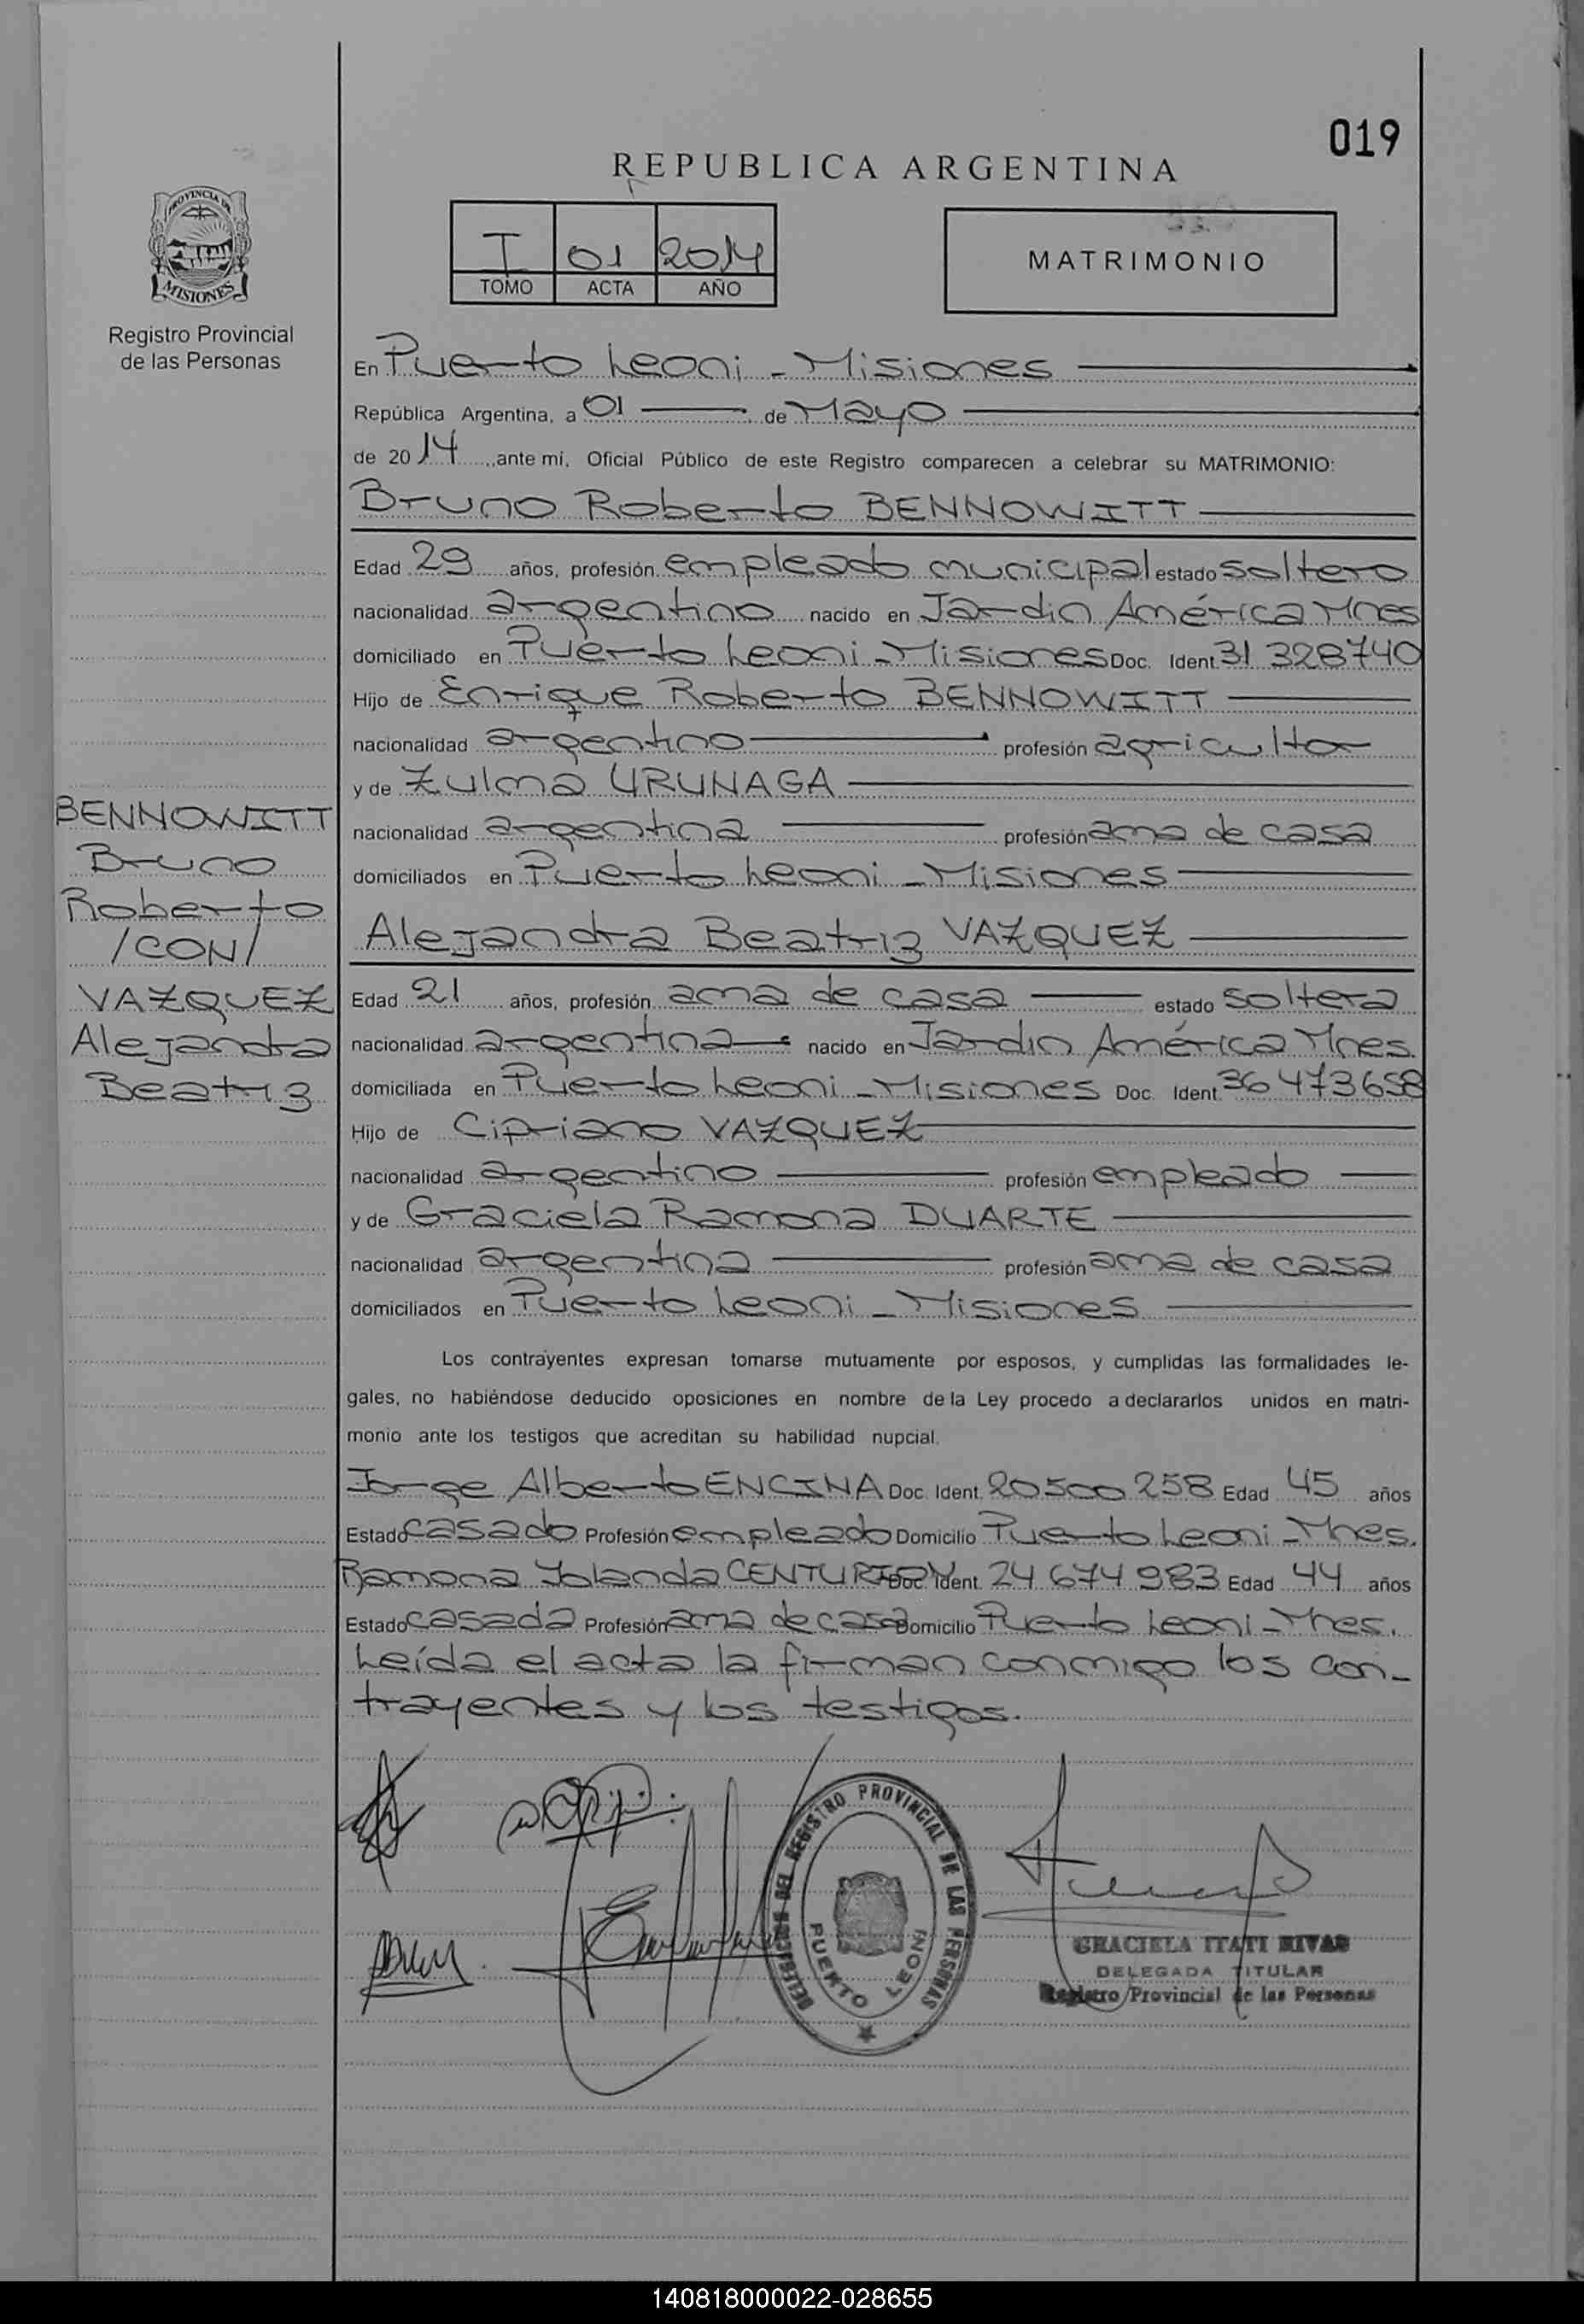 019
REPUBLICA ARGENTINA
PROVINCIA DE
MISIONES
Registro Provincial
de las Personas
I 01 2014
TOMO ACTA AÑO
MATRIMONIO
En Puerto Leoni - Misiones
República Argentina, a 01 de Mayo
de 2014, ante mí, Oficial Público de este Registro comparecen a celebrar su MATRIMONIO:
Bruno Roberto BENNOWITT
Edad 29 años, profesión empleado municipal estado soltero
nacionalidad argentino nacido en Jardin América Mnes
domiciliado en Puerto Leoni - Misiones Doc. Ident. 31 328740
Hijo de Enrique Roberto BENNOWITT
nacionalidad argentino profesión agricultor
y de Zulma URUNAGA
nacionalidad argentina profesión ama de casa
domiciliados en Puerto Leoni - Misiones
BENNOWITT
Bruno
Roberto
/CON/
VAZQUEZ
Alejandra
Beatriz
Alejandra Beatriz VAZQUEZ
Edad 21 años, profesión ama de casa estado soltera
nacionalidad argentina nacido en Jardin América Mnes.
domiciliada en Puerto Leoni - Misiones Doc. Ident. 36 473658
Hijo de Cipriano VAZQUEZ
nacionalidad argentino profesión empleado
y de Graciela Ramona DUARTE
nacionalidad argentina profesión ama de casa
domiciliados en Puerto Leoni - Misiones
Los contrayentes expresan tomarse mutuamente por esposos, y cumplidas las formalidades le-
gales, no habiéndose deducido oposiciones en nombre de la Ley procedo a declararlos unidos en matri-
monio ante los testigos que acreditan su habilidad nupcial.
Jorge Alberto ENCINA Doc. Ident. 20500 258 Edad 45 años
Estado casado Profesión empleado Domicilio Puerto Leoni - Mnes.
Ramona Yolanda CENTURION Doc. Ident. 24 674 983 Edad 44 años
Estado casada Profesión ama de casa Domicilio Puerto Leoni - Mnes.
Leída el acta la firman conmigo los con-
trayentes y los testigos.
DELEGACION DEL REGISTRO PROVINCIAL DE LAS PERSONAS
PUERTO LEONI
GRACIELA ITATI RIVAS
DELEGADA TITULAR
Registro Provincial de las Personas
140818000022-028655